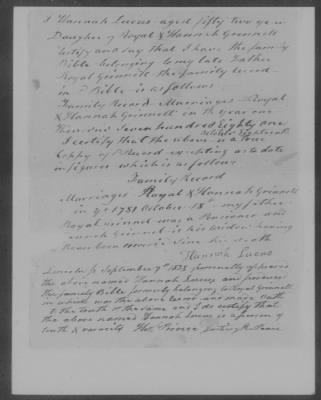 I Hannah Lucas aged fifty two years
Daughter of Royal & Hannah Grinnell
testify and say that I have the family
Bible belonging to my late Father
Royal Grinnell the family record
in Bible is as follows
Family Record Marriages Royal
& Hannah Grinnell in the year one
Thousand Seven hundred Eighty one
October Eighteenth
I certify that the above is a true
Coppy of Record excepting as to date
in figures which is as follows
Family Record
Marriages Royal & Hannah Grinnell
in 1781 October 18th my father
Royal Grinnell was a Pensioner and
Hannah Grinnell is his widow having
never been married since his death
Hannah Lucas
Lincoln Ss September 7th 1838 personally appeared
the above named Hannah Lucas and produced
the family Bible formerly belonging to Royal Grinnell
in which was the above record and made oath
to the truth of the same and I do certify that
the above named Hannah Lucas is a person of
truth & veracity Prince Justice Peace